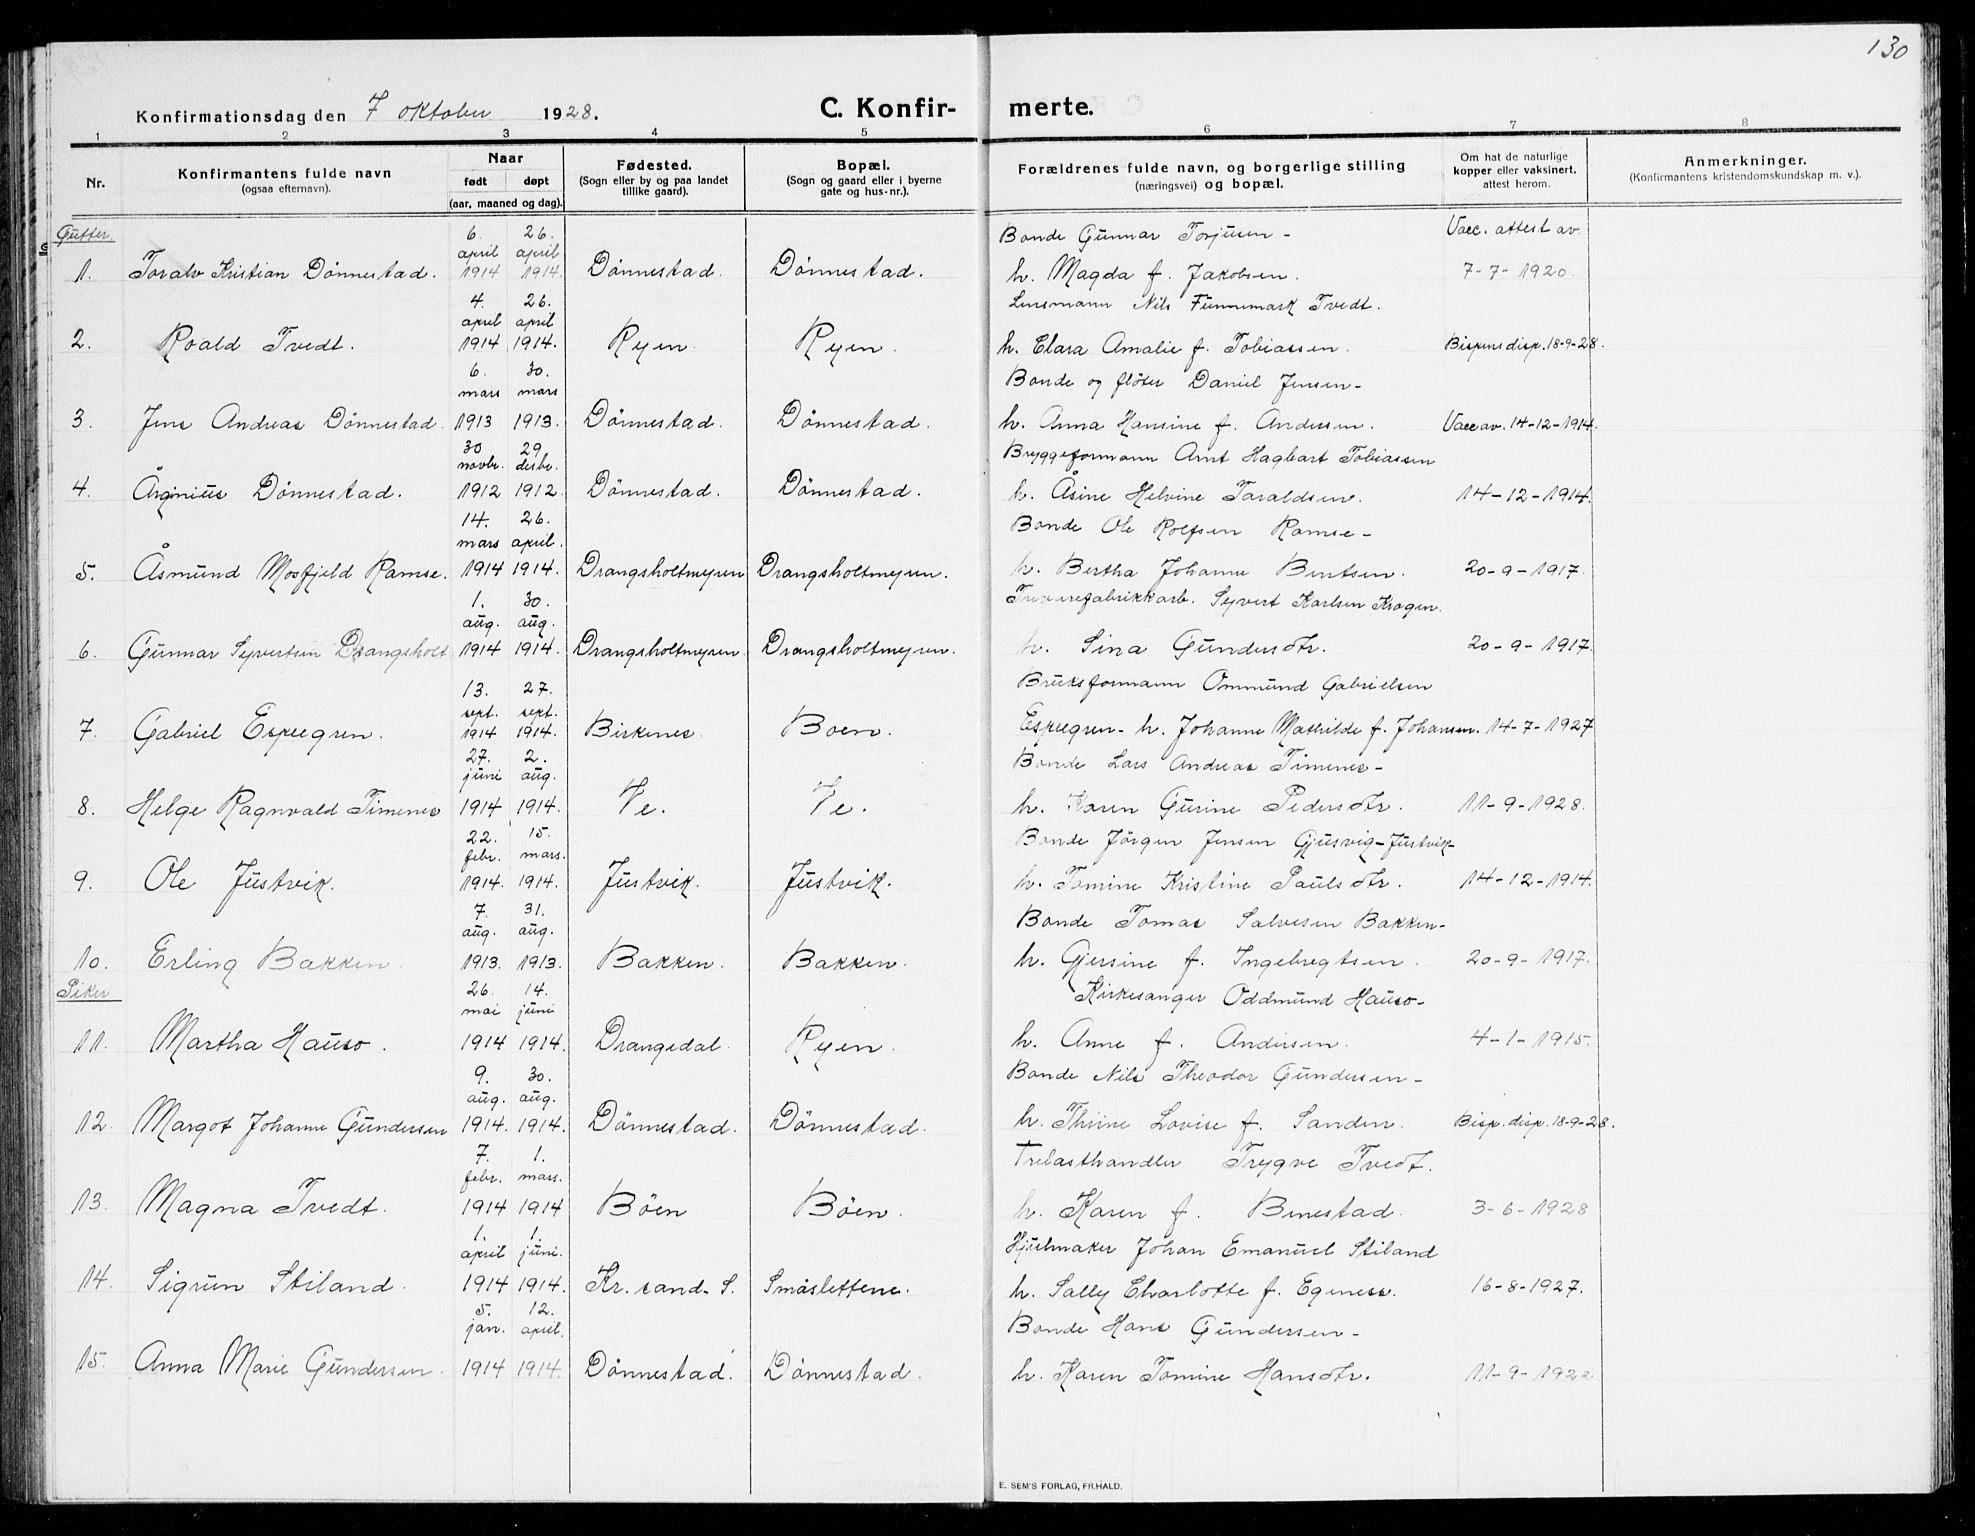 130
Konfirmationsdag den 7 oktober 1928. C. Konfir- merte.
1 2 3 4 5 6 7 8
Nr. Konfirmantens fulde navn (ogsaa efternavn). Naar født døpt (aar, maaned og dag). Fødested. (Sogn eller by og paa landet tillike gaard). Bopæl. (Sogn og gaard eller i byerne gate og hus-nr.). Forældrenes fulde navn, og borgerlige stilling (næringsvei) og bopæl. Om hat de naturlige kopper eller vaksinert, attest herom. Anmerkninger. (Konfirmantens kristendomskundskap m. v.).
Gutter. 6. 26. Bonde Gunnar Torjusen - Vacc. attest av
april april
1. Toralv Kristian Dönnestad. 1914 1914. Dönnestad. Dönnestad. h. Magda f. Jakobsen. 7-7-1920.
4. 26. Lensmann Nils Funnemark Tvedt.
april april
2. Roald Tvedt. 1914 1914. Ryen. Ryen. h. Clara Amalie f. Tobiassen. Bispens disp. 18-9-28.
6. 30. Bonde og fløter Daniel Jensen-
mars mars
3. Jens Andreas Dönnestad. 1913 1913. Dönnestad. Dönnestad. h. Anna Hansine f. Andersen. Vacc av. 14-12-1914.
30 29 Bryggeformann Arnt Hagbart Tobiassen
novbr. desbr.
4. Årginius Dönnestad. 1912 1912. Dönnestad. Dönnestad. h. Åsine Helvine Taraldsen. 14-12-1914.
14. 26. Bonde Ole Rolfsen Ramse-
mars april.
5. Åsmund Mosfjeld Ramse. 1914 1914. Drangsholtmyren Drangsholtmyren. h. Bertha Johanne Bentsen. 20-9-1917.
1. 30. Trevarefabrikkarb. Syvert Karlsen Krogen.
aug. aug.
6. Gunnar Syvertsen Drangsholt 1914 1914. Drangsholtmyren. Drangsholtmyren. h. Sina Gundersdtr. 20-9-1917.
13. 27. Bruksformann Ommund Gabrielsen
sept. sept.
7. Gabriel Espegren. 1914 1914. Birkenes. Boen. Espegren- h. Johanne Mathilde f. Johansen. 14-7-1927
27. 2. Bonde Lars Andreas Timenes-
juni aug.
8. Helge Ragnvald Timenes 1914 1914. Ve. Ve. h. Karen Gurine Pedersdtr. 11-9-1928.
22. 15. Bonde Jörgen Jensen Gjusvig-Justvik-
febr. mars.
9. Ole Justvik. 1914. 1914. Justvik. Justvik. h. Tomine Kristine Paulsdtr. 14-12-1914.
7. 31. Bonde Tomas Salvesen Bakken-
aug. aug.
10. Erling Bakken. 1913. 1913. Bakken. Bakken. h. Gjersine f. Ingebregtsen. 20-9-1917.
Piker 26. 14. Kirkesanger Oddmund Hauso-
mai juni
11. Martha Hauso. 1914 1914. Drangedal. Ryen. h. Anne f. Andersen. 4-1-1915.
9. 30. Bonde Nils Theodor Gundersen-
aug. aug.
12. Margot Johanne Gundersen 1914. 1914. Dönnestad. Dönnestad. h. Thrine Lovise f. Sanden. Bisp. disp. 18-9-28.
7. 1. Trelasthandler Trygve Tvedt.
febr. mars.
13. Magna Tvedt. 1914 1914 Böen Böen. h. Karen f. Benestad. 3-6-1928
1. 1. Hjulmaker Johan Emanuel Stiland
april juni.
14. Sigrun Stiland. 1914 1914. Kr. sand. S. Småslettene. h. Sally Charlotte f. Egeness. 16-8-1927.
5. 12. Bonde Hans Gundersen-
jan. april.
15. Anna Marie Gundersen. 1914 1914. Dönnestad. Dönnestad. h. Karen Tomine Hansdtr. 11-9-1922.
E. SEM'S FORLAG, FR.HALD.